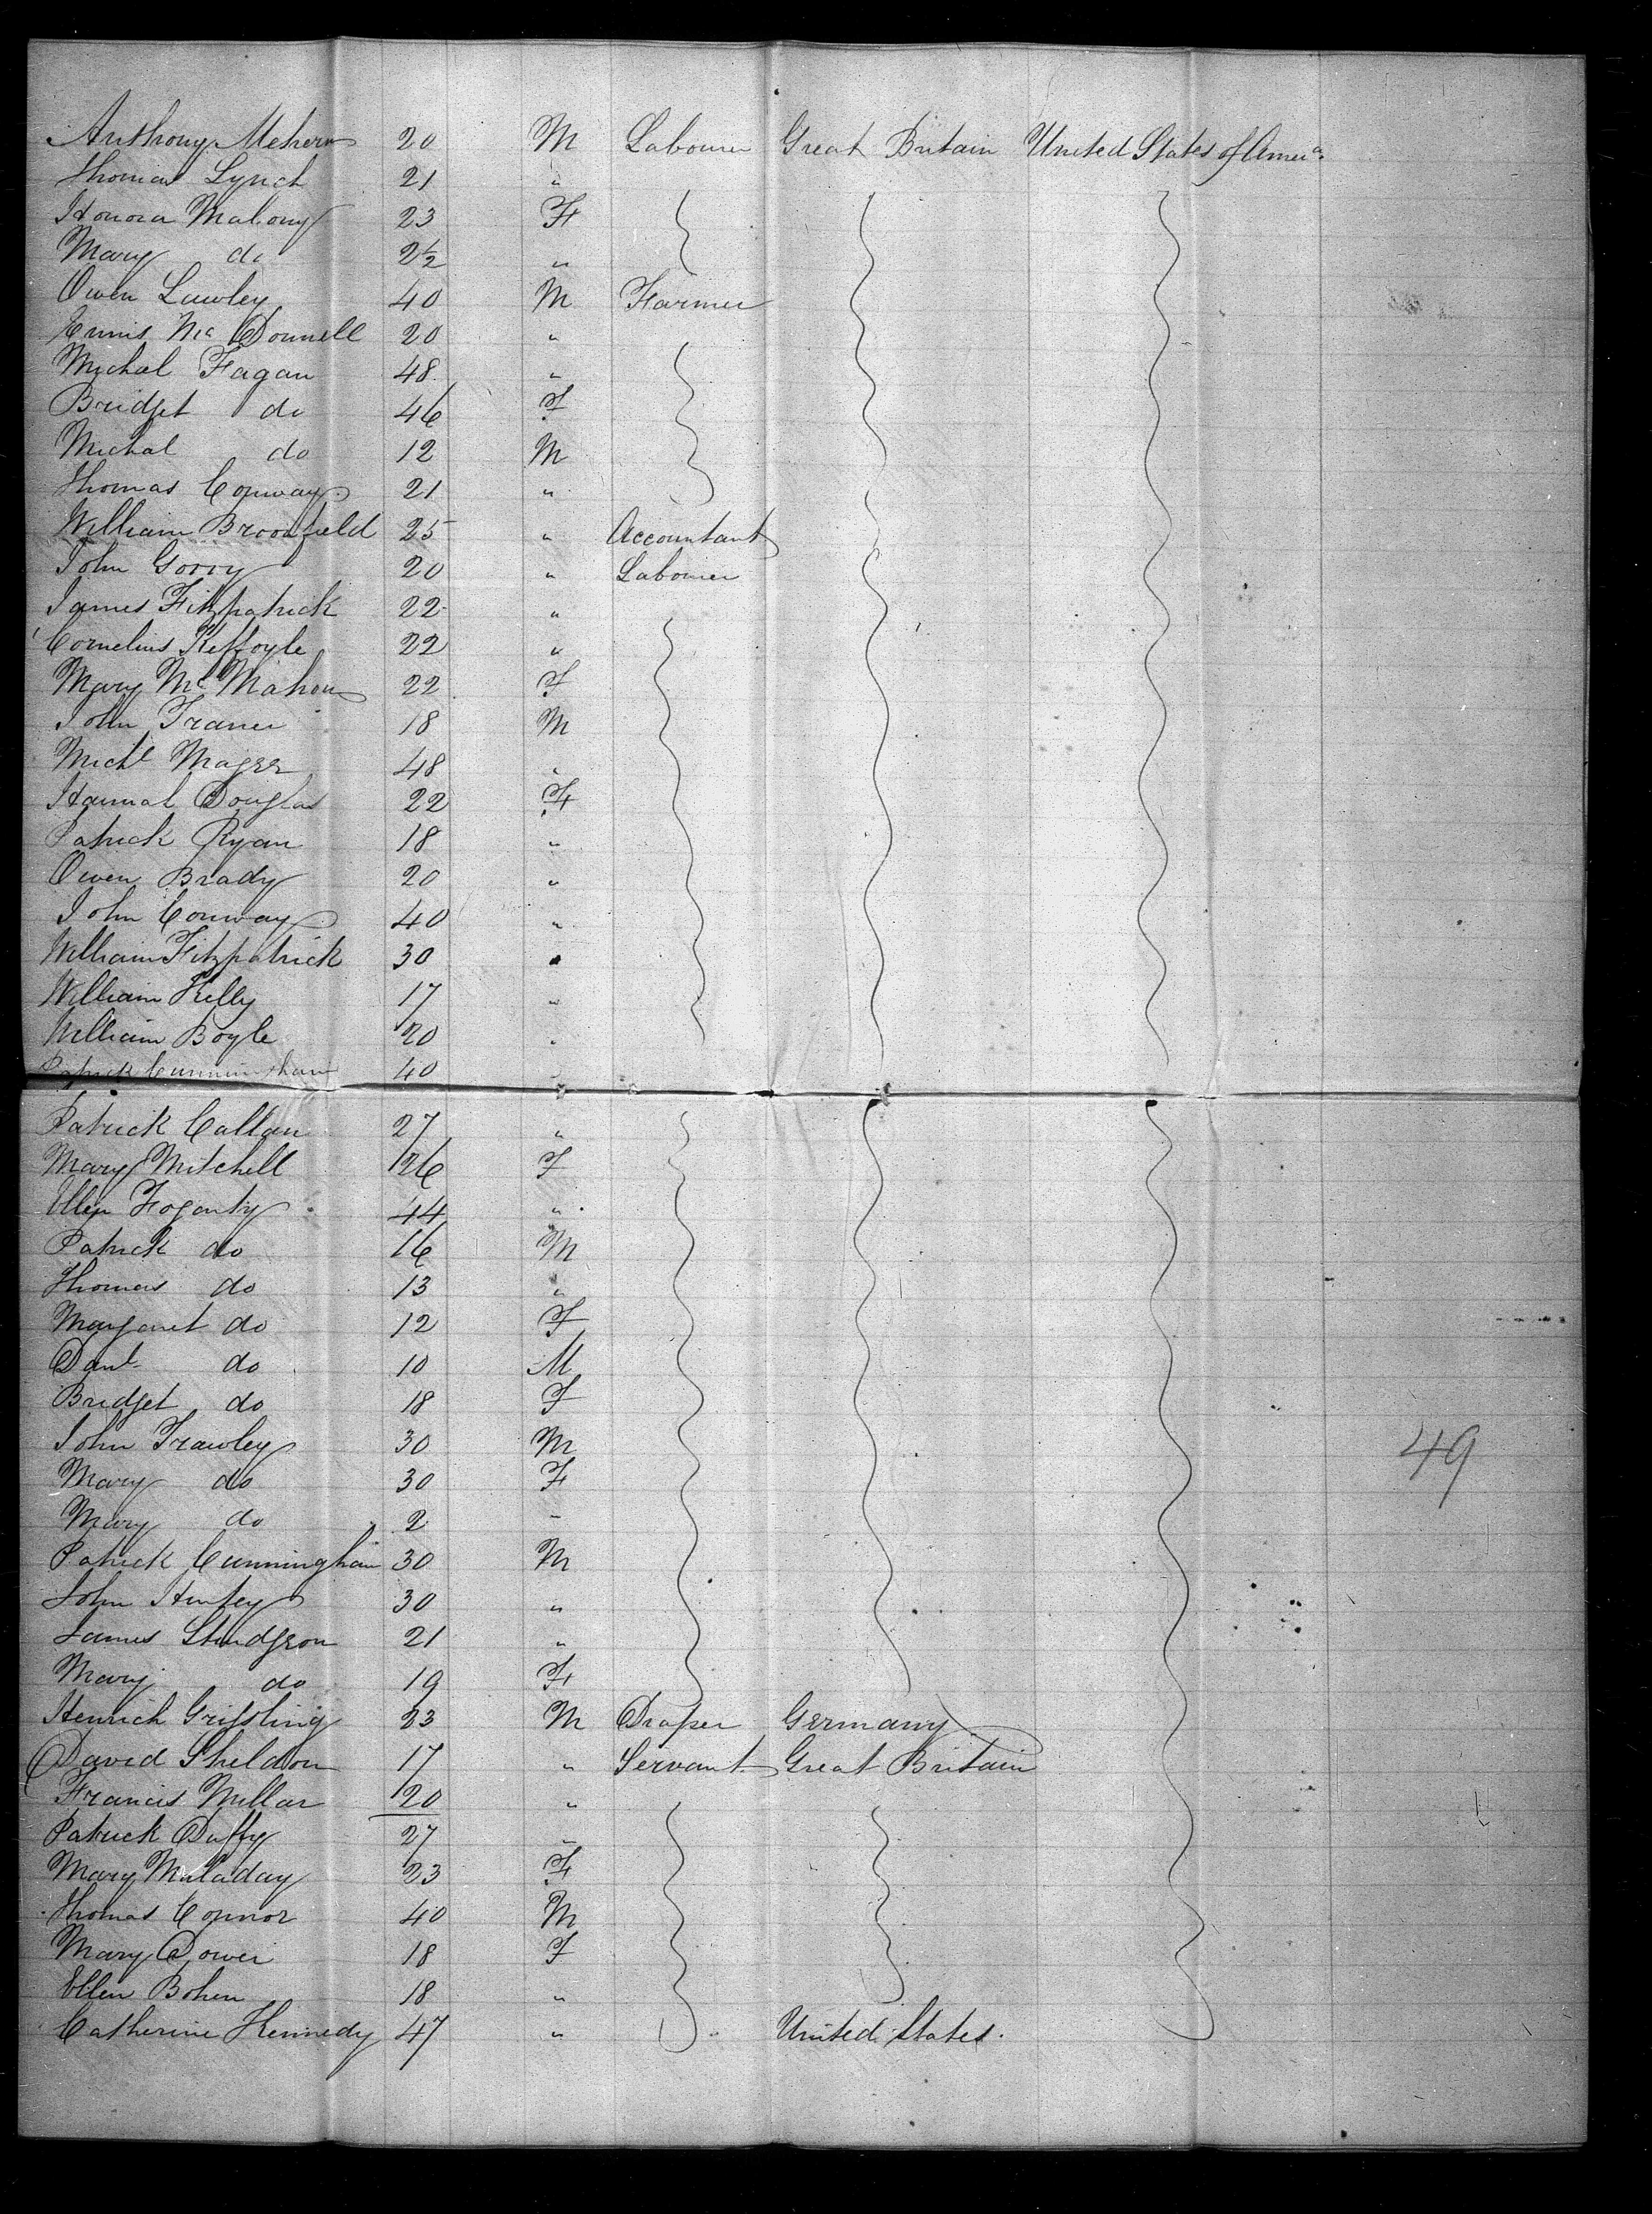 Anthony Mehern 20 M Labourer Great Britain United States of Amera
Thomas Lynch 21 "
Honora Mahony 23 F
Mary do 2½ "
Owen Lawley 40 M Farmer
Ennis Mc Donnell 20 "
Michael Fagan 48 "
Bridget do 46 F
Michal do 12 M
Thomas Conway 21 "
William Broomfield 25 " Accountant
John Gorry 20 " Labourer
James Fitzpatrick 22 "
Cornelius 22 "
Mary Mc Mahon 22 F
John 18 M
Michl Magee 48 "
Hannah Douglas 22 F
Patrick Ryan 18 "
Owen Brady 20 "
John Conway 40 "
William Fitzpatrick 30 "
William Kelly 17 "
William Boyle 20 "
Patrick Cunningham 40 "
Patrick Callan 27 "
Mary Mitchell 26 F
Ellen Fogarty 44 "
Patrick do 16 M
Thomas do 13 "
Margaret do 12 F
Danl do 10 M
Bridget do 18 F
John Frawley 30 M
Mary do 30 F
Mary do 2 "
Patrick Cunningham 30 M
John 30 "
James 21 "
Mary do 19 F
Henrich 23 M Draper Germany
David Sheldon 17 " Servant Great Britain
Francis Millar 20 "
Patrick Duffy 27 "
Mary Muladay 23 F
Thomas Connor 40 M
Mary Dower 18 F
Ellen Bohen 18 "
Catherine Kennedy 47 " United States.
49